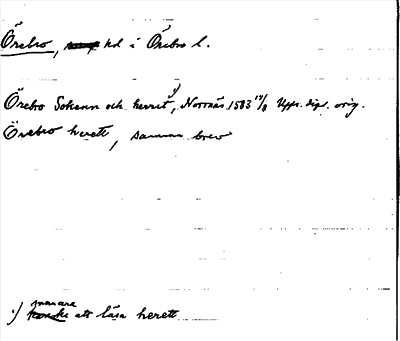 Örebro, hd i Örebro l.
Örebro Sokenn och herret¹⁾, Norrnäs 1583 14/8 Upps. dipl. orig.
Örebro herett, samma brev
¹⁾ snarare
kanske att läsa herett